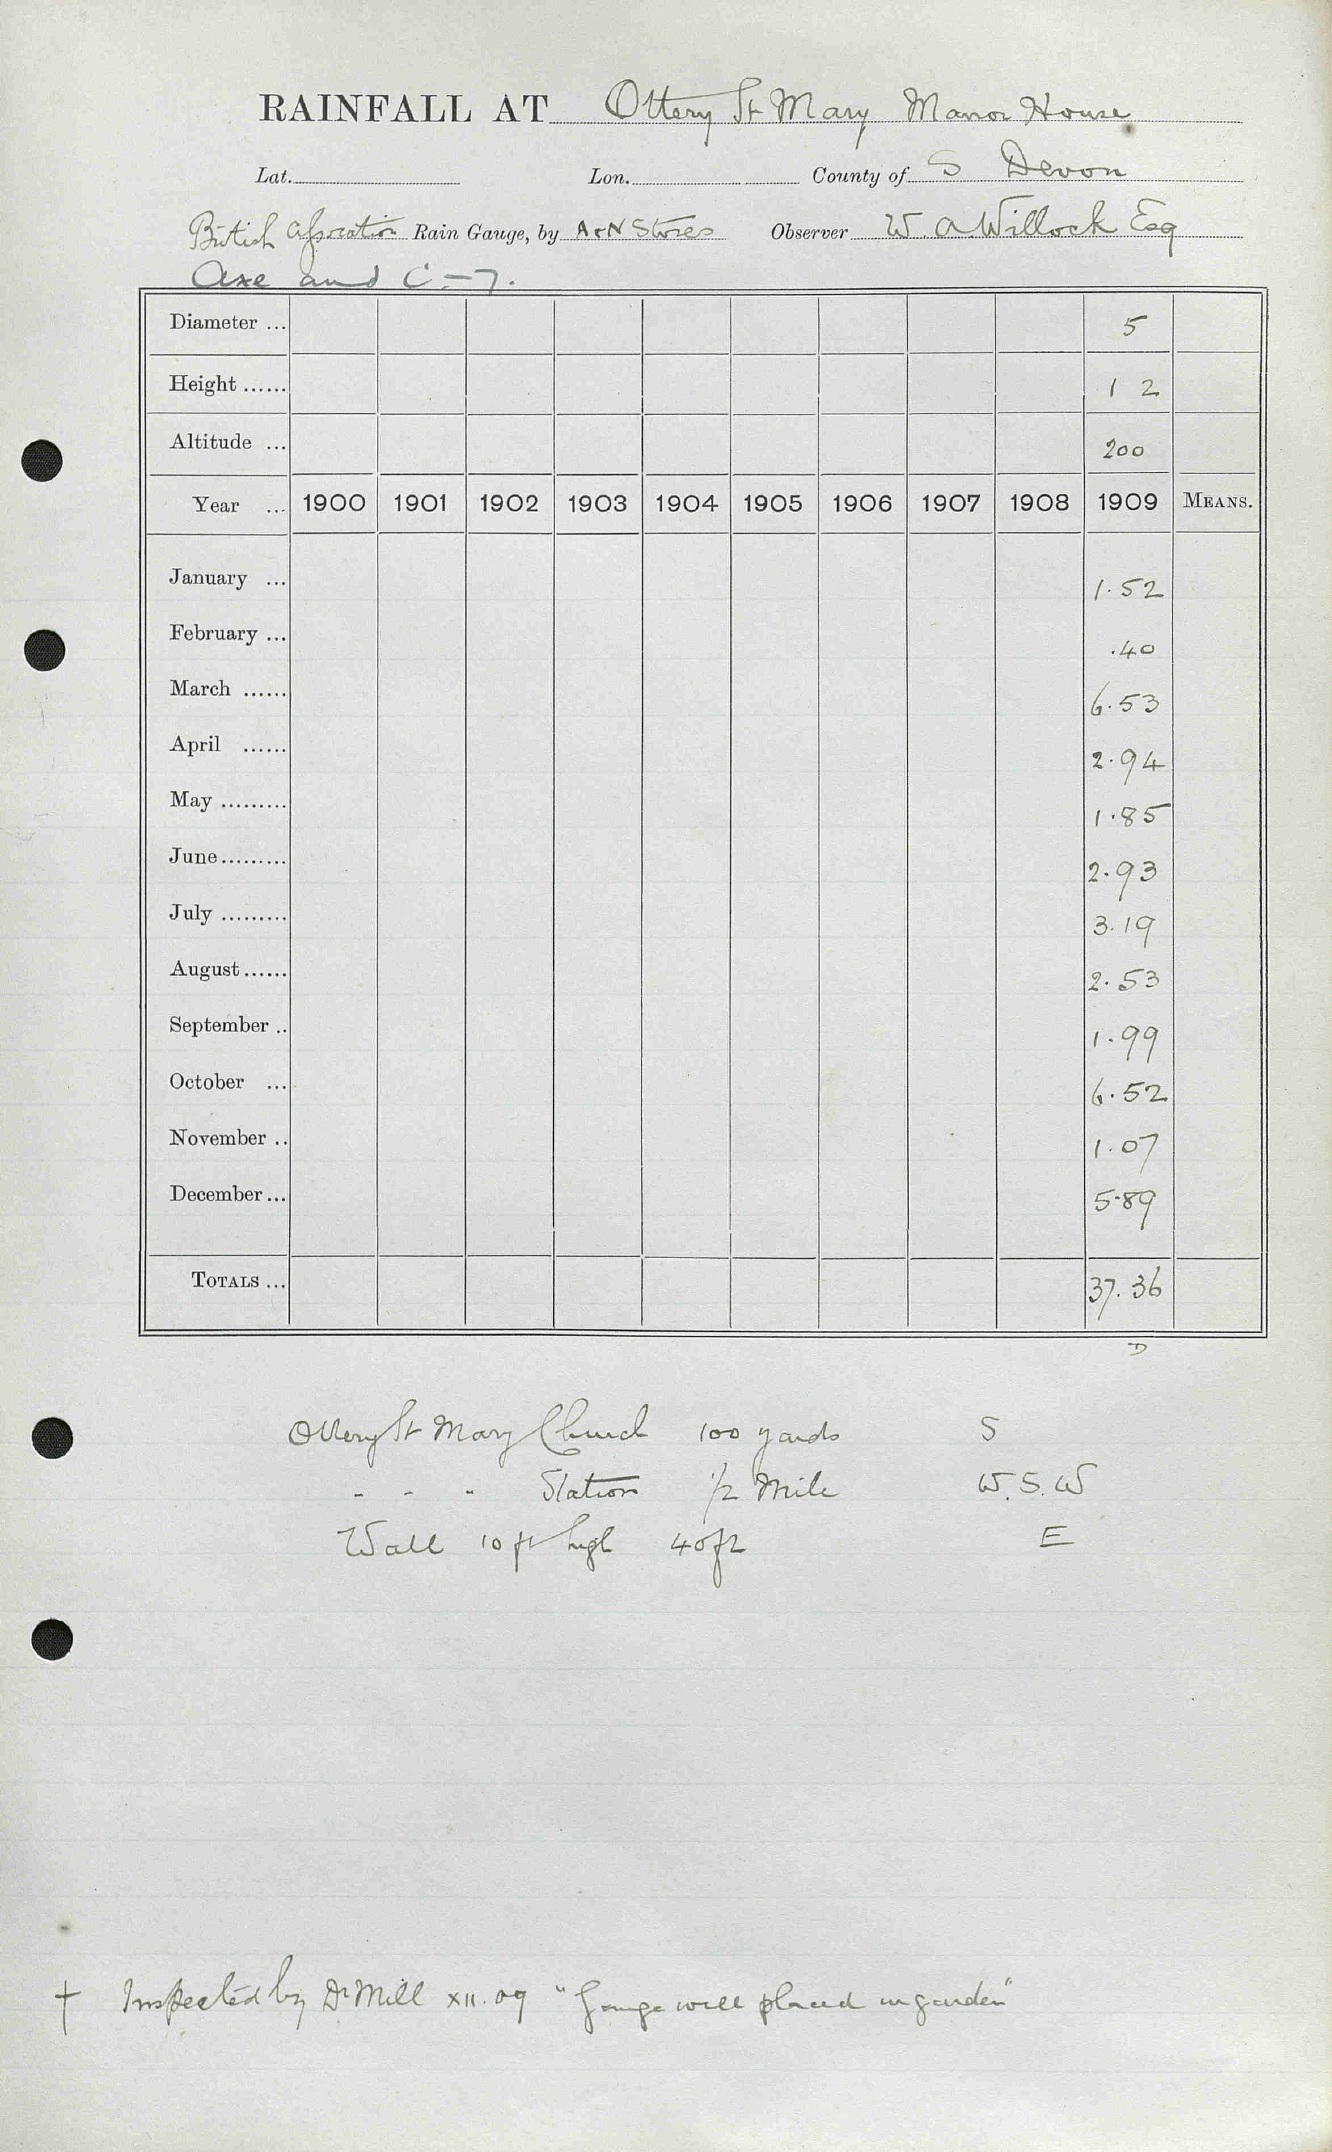 RAINFALL AT Ottery St Mary Manor House
Lat. Lon. County of S Devon
British Association Rain Gauge, by A & N Stores Observer W. A. Willock Esq
Axe and C - 7.
Diameter ... 5
Height ...... 1 2
Altitude ... 200
Year ... 1900 1901 1902 1903 1904 1905 1906 1907 1908 1909 MEANS.
January ... 1.52
February ... .40
March ...... 6.53
April ...... 2.94
May ......... 1.85
June ......... 2.93
July ......... 3.19
August ...... 2.53
September .. 1.99
October ... 6.52
November .. 1.07
December ... 5.89
TOTALS ... 37.36
D
Ottery St Mary Church 100 yards S
" " " Station 1/2 Mile W.S.W
Wall 10 ft high 40 ft E
† Inspected by Dr Mill XII.09 "Gauge well placed in garden"